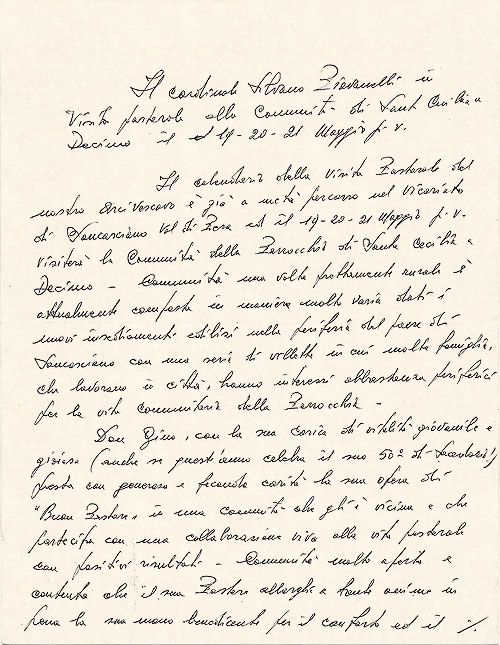 Il cardinale Silvano Piovanelli in
Visita pastorale alla Comunità di Santa Cecilia a
Decimo il 19-20-21 Maggio p.v.
Il calendario della Visita Pastorale del
nostro Arcivescovo è già a metà percorso nel Vicariato
di Sancasciano Val di Pesa ed il 19-20-21 Maggio p.v.
visiterà la Comunità della Parrocchia di Santa Cecilia a
Decimo - Comunità una volta prettamente rurale è
attualmente composta in maniera molto varia dati i
nuovi insediamenti edilizi nella periferia del paese di
Sancasciano con una serie di villette in cui molte famiglie,
che lavorano in città, hanno interessi abbastanza periferici
per la vita comunitaria della Parrocchia -
Don Gino, con la sua carica di vitalità giovanile e
gioiosa (anche se quest'anno celebra il suo 50° di Sacerdozio!)
presta con generosa e feconda carità la sua opera di
"Buon Pastore" in una comunità che gli è vicina e che
partecipa con una collaborazione viva alla vita pastorale
con positivi risultati - Comunità molto aperta e
contenta che il suo Pastore allarghi a tante anime in
pena la sua mano benedicente per il conforto ed il ./.